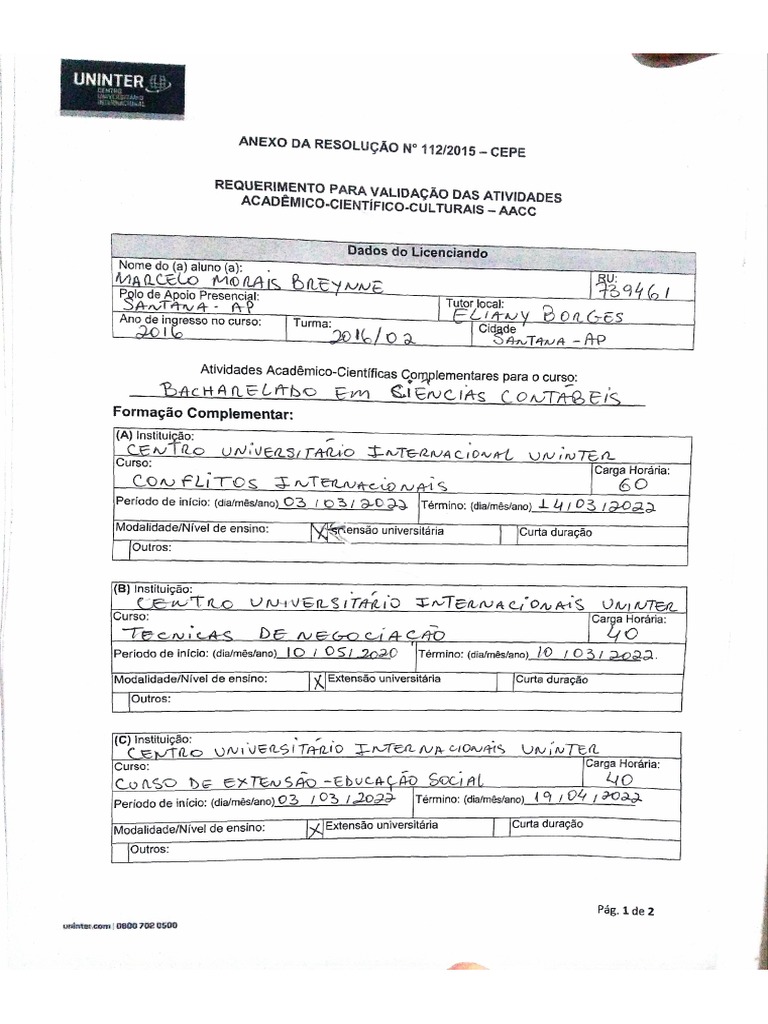 UNINTER
CENTRO
UNIVERSITÁRIO
INTERNACIONAL
ANEXO DA RESOLUÇÃO Nº 112/2015 – CEPE
REQUERIMENTO PARA VALIDAÇÃO DAS ATIVIDADES
ACADÊMICO-CIENTÍFICO-CULTURAIS – AACC
Dados do Licenciando
Nome do (a) aluno (a): RU:
MARCELO MORAIS BREYNNE 739461
Polo de Apoio Presencial: Tutor local:
SANTANA - AP ELIANY BORGES
Ano de ingresso no curso: Turma: Cidade
2016 2016/02 SANTANA - AP
Atividades Acadêmico-Científicas Complementares para o curso:
BACHARELADO EM CIÊNCIAS CONTABEIS
Formação Complementar:
(A) Instituição:
CENTRO UNIVERSITÁRIO INTERNACIONAL UNINTER
Curso: Carga Horária:
CONFLITOS INTERNACIONAIS 60
Período de início: (dia/mês/ano) 03/03/2022 Término: (dia/mês/ano) 14/03/2022
Modalidade/Nível de ensino: X Extensão universitária Curta duração
Outros:
(B) Instituição:
CENTRO UNIVERSITÁRIO INTERNACIONAIS UNINTER
Curso: Carga Horária:
TECNICAS DE NEGOCIAÇÃO 40
Período de início: (dia/mês/ano) 10/05/2020 Término: (dia/mês/ano) 10/03/2022.
Modalidade/Nível de ensino: X Extensão universitária Curta duração
Outros:
(C) Instituição:
CENTRO UNIVERSITÁRIO INTERNACIONAIS UNINTER
Curso: Carga Horária:
CURSO DE EXTENSÃO - EDUCAÇÃO SOCIAL 40
Período de início: (dia/mês/ano) 03/03/2022 Término: (dia/mês/ano) 19/04/2022
Modalidade/Nível de ensino: X Extensão universitária Curta duração
Outros:
Pág. 1 de 2
uninter.com | 0800 702 0500